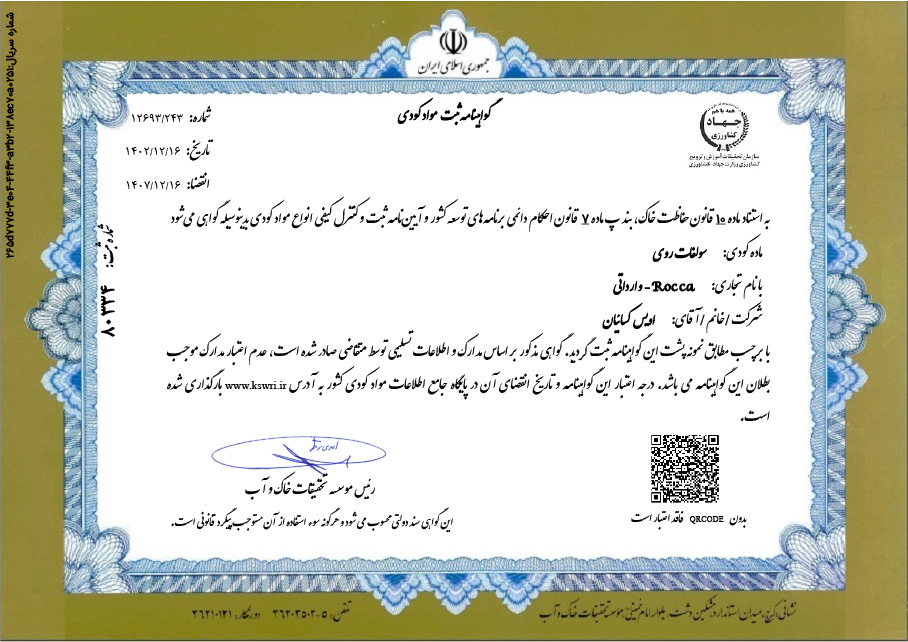 جمهوری اسلامی ایران
گواهینامه ثبت مواد کودی
همه با هم
جهاد
کشاورزی
سازمان تحقیقات، آموزش و ترویج
کشاورزی وزارت جهاد کشاورزی
شماره: ۱۲۶۹۳/۲۴۳
تاریخ: ۱۴۰۲/۱۲/۱۶
انقضا: ۱۴۰۷/۱۲/۱۶
به استناد ماده ۱۰ قانون حفاظت خاک، بند پ ماده ۷ قانون احکام دائمی برنامه های توسعه کشور و آیین نامه ثبت و کنترل کیفی انواع مواد کودی بدینوسیله گواهی می شود
ماده کودی: سولفات روی
با نام تجاری: Rocca - وارداتی
شرکت / خانم / آقای: اویس کسائیان
با برچسب مطابق نمونه پشت این گواهینامه ثبت گردید. گواهی مذکور بر اساس مدارک و اطلاعات تسلیمی توسط متقاضی صادر شده است، عدم اعتبار مدارک موجب
بطلان این گواهینامه می باشد. درجه اعتبار این گواهینامه و تاریخ انقضای آن در پایگاه جامع اطلاعات مواد کودی کشور به آدرس www.kswri.ir بارگذاری شده
است.
شماره ثبت: ۸۰۳۳۴
رئیس موسسه تحقیقات خاک و آب
بدون QRCODE فاقد اعتبار است
این گواهی سند دولتی محسوب می شود و هرگونه سوء استفاده از آن مستوجب پیگرد قانونی است.
نشانی: کرج، میدان استاندارد، مشکین دشت، بلوار امام خمینی، موسسه تحقیقات خاک و آب
تلفن: ۵-۳۶۲۰۳۵۰۲ دورنگار: ۳۶۲۱۰۱۲۱